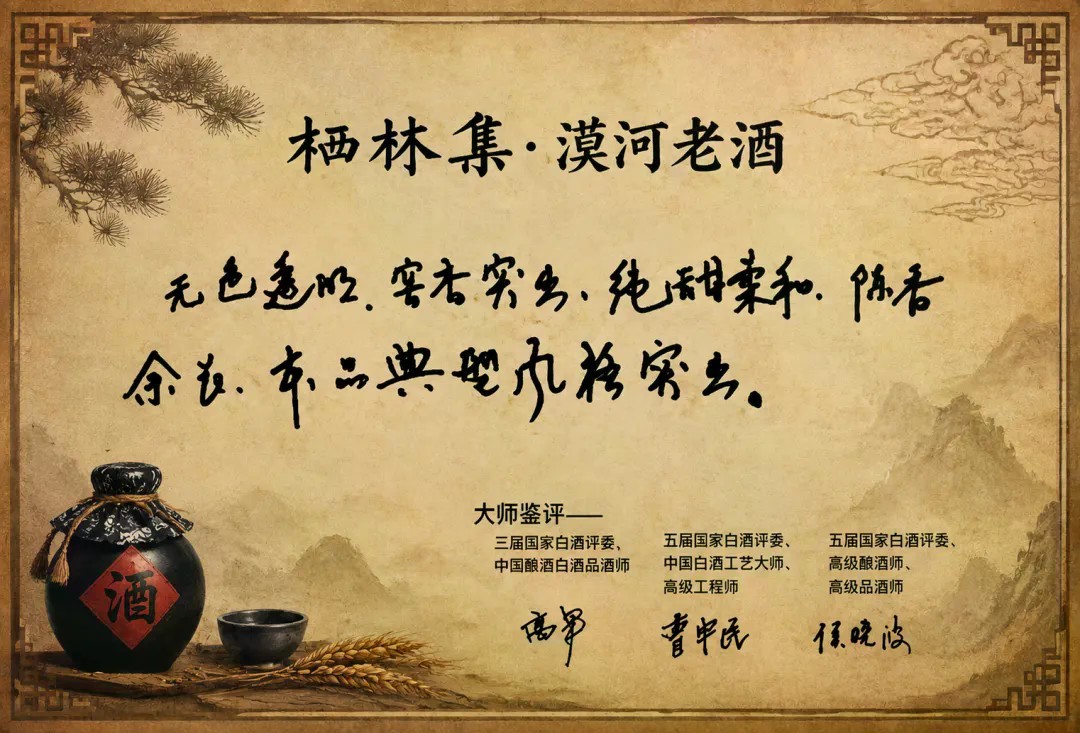 栖林集·漠河老酒
无色透明、窖香突出、纯甜柔和、陈香
余长、本品典型风格突出。
大师鉴评——
三届国家白酒评委、
中国酿酒白酒品酒师
五届国家白酒评委、
中国白酒工艺大师、
高级工程师
五届国家白酒评委、
高级酿酒师、
高级品酒师
高军
曹中民
侯晓波
酒